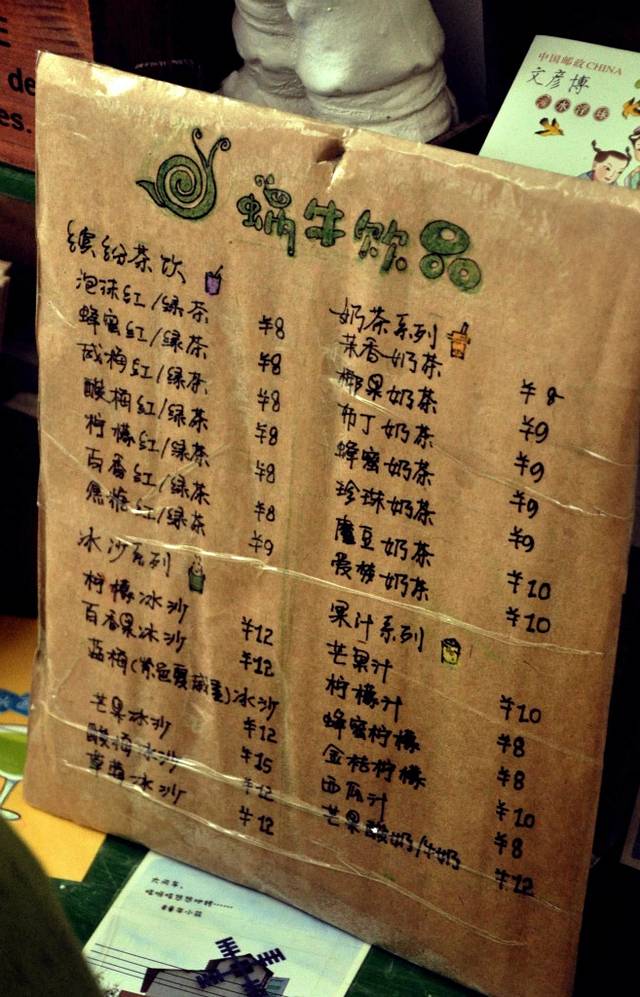 de
es.
中国邮政CHINA
文彦博
蜗牛饮品
缤纷茶饮
泡沫红/绿茶 ¥8
蜂蜜红/绿茶 ¥8
咸梅红/绿茶 ¥8
酸梅红/绿茶 ¥8
柠檬红/绿茶 ¥8
百香红/绿茶 ¥8
焦糖红/绿茶 ¥9
冰沙系列
柠檬冰沙 ¥12
百香果冰沙 ¥12
蓝梅(紫色夏威夷)冰沙 ¥12
芒果冰沙 ¥15
酸梅冰沙 ¥12
草莓冰沙 ¥12
奶茶系列
茉香奶茶 ¥8
椰果奶茶 ¥9
布丁奶茶 ¥9
蜂蜜奶茶 ¥9
珍珠奶茶 ¥9
魔豆奶茶 ¥10
曼梦奶茶 ¥10
果汁系列
芒果汁 ¥10
柠檬汁 ¥8
蜂蜜柠檬 ¥8
金桔柠檬 ¥10
西瓜汁 ¥8
芒果酸奶/牛奶 ¥12